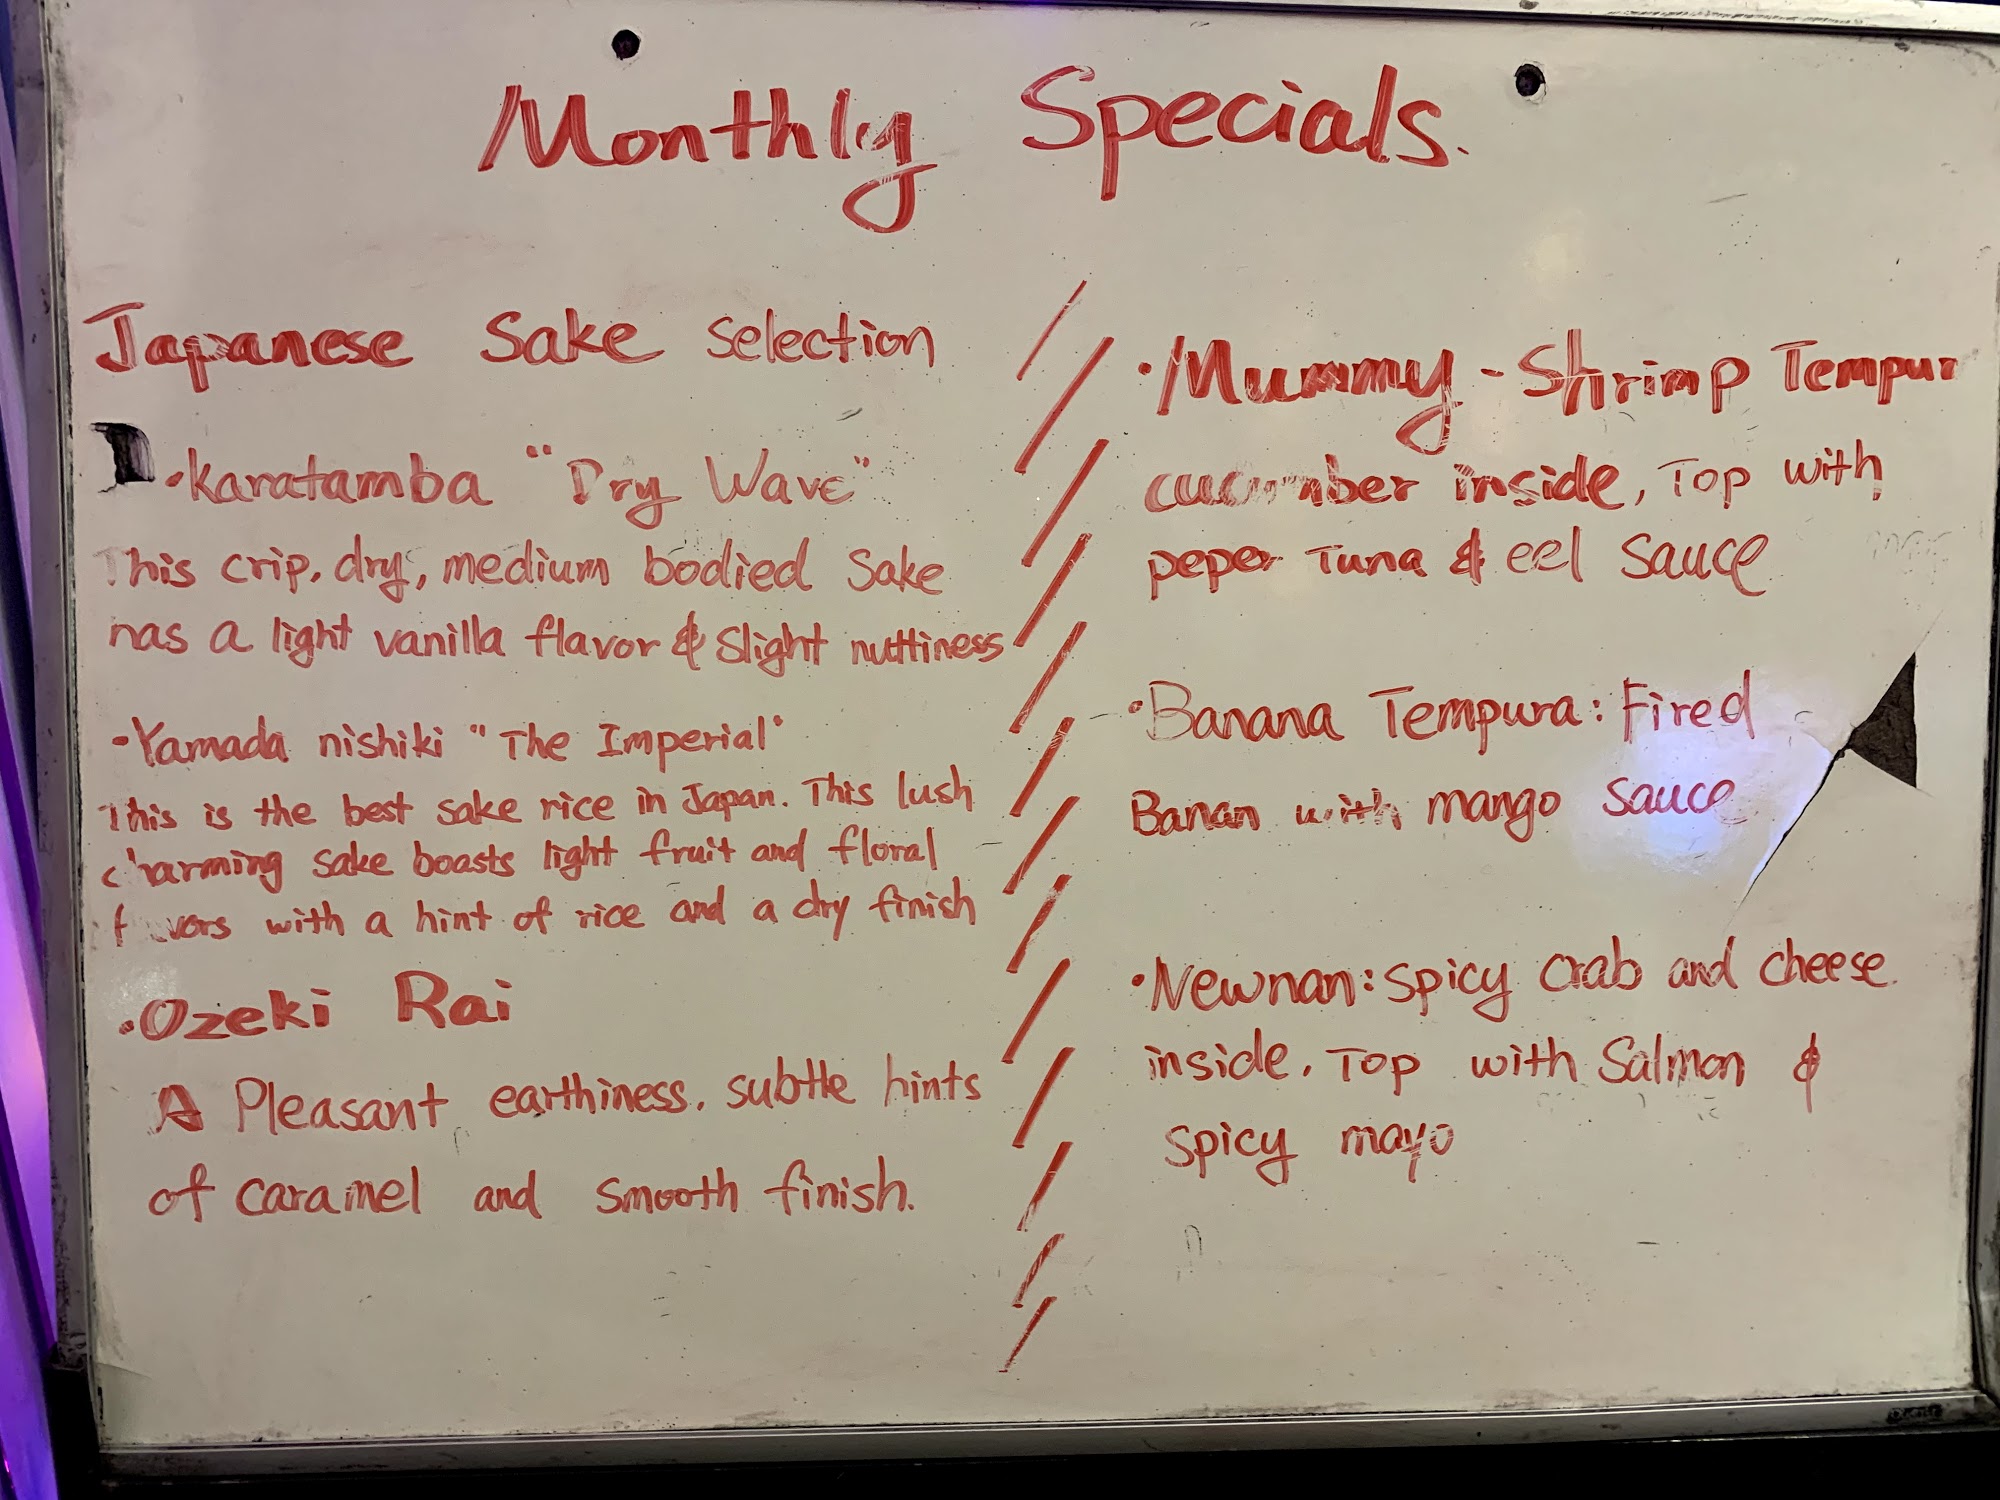 Monthly Specials.
Japanese Sake Selection
·Karatamba "Dry Wave"
This crip, dry, medium bodied Sake
has a light vanilla flavor & Slight nuttiness
·Yamada nishiki "The Imperial"
This is the best sake rice in Japan. This lush
charming sake boasts light fruit and floral
flavors with a hint of rice and a dry finish
·Ozeki Rai
A Pleasant earthiness, subtle hints
of caramel and smooth finish.
·Mummy - Shrimp Tempur
cucumber inside, Top with
peper Tuna & eel Sauce
·Banana Tempura: Fired
Banan with mango Sauce
·Newnan: Spicy Crab and cheese
inside. Top with Salmon &
Spicy mayo